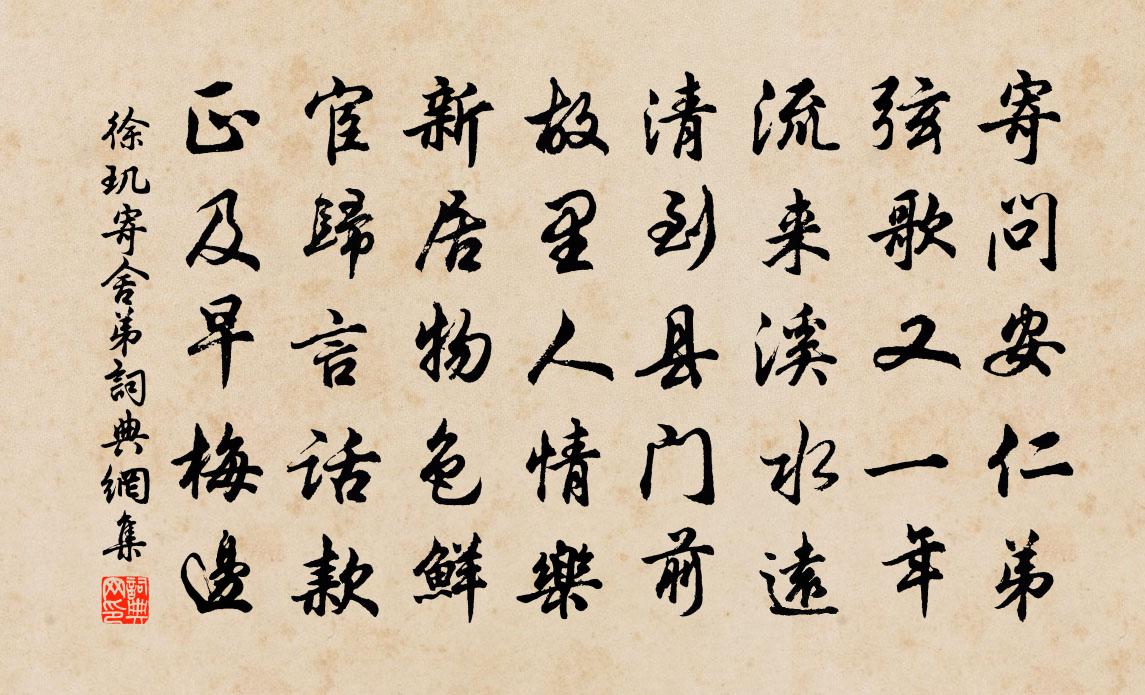 寄问安仁弟
弦歌又一年
流来溪水远
清到县门前
故里人情樂
新居物色鮮
宦歸言话款
正及早梅邊
徐玑寄舍弟詞典網集
詞典网印